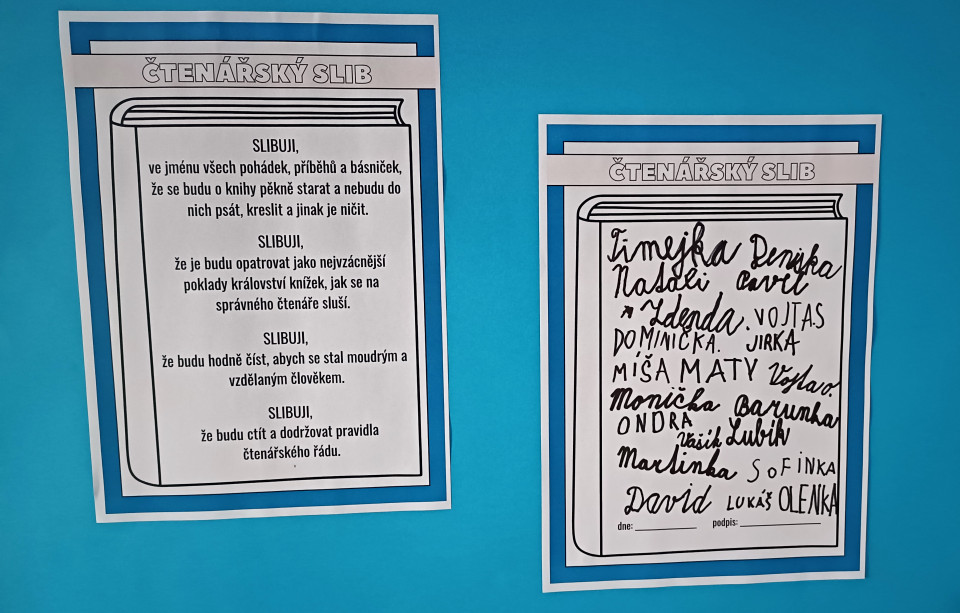 ČTENÁŘSKÝ SLIB
SLIBUJI,
ve jménu všech pohádek, příběhů a básniček,
že se budu o knihy pěkně starat a nebudu do
nich psát, kreslit a jinak je ničit.
SLIBUJI,
že je budu opatrovat jako nejvzácnější
poklady království knížek, jak se na
správného čtenáře sluší.
SLIBUJI,
že budu hodně číst, abych se stal moudrým a
vzdělaným člověkem.
SLIBUJI,
že budu ctít a dodržovat pravidla
čtenářského řádu.
ČTENÁŘSKÝ SLIB
Timejka Deniska
Natáli Pavel
Zdenda. VOJTAS
DOMINIČKA. JIRKA
MÍŠA MATY Vojta O.
Monička Barunka
ONDRA
Vašík Lubík
Martinka SOFINKA
David LUKÁŠ OLENKA
dne: podpis: